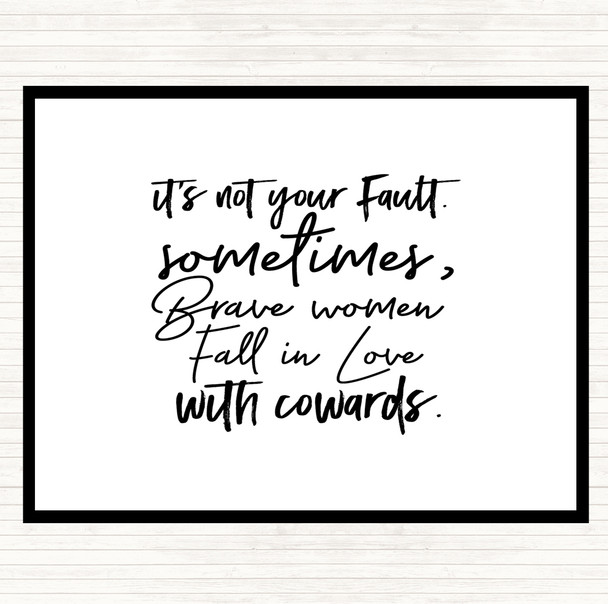 it's not your Fault.
sometimes,
Brave women
Fall in Love
with cowards.